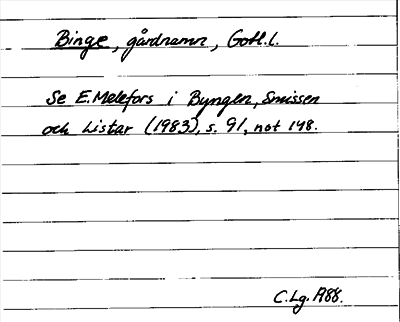 Binge, gårdnamn, Gotl.l.
Se E. Melefors i Byngen, Smissen
och Listar (1983), s. 91, not 148.
C.Lg. 1988.